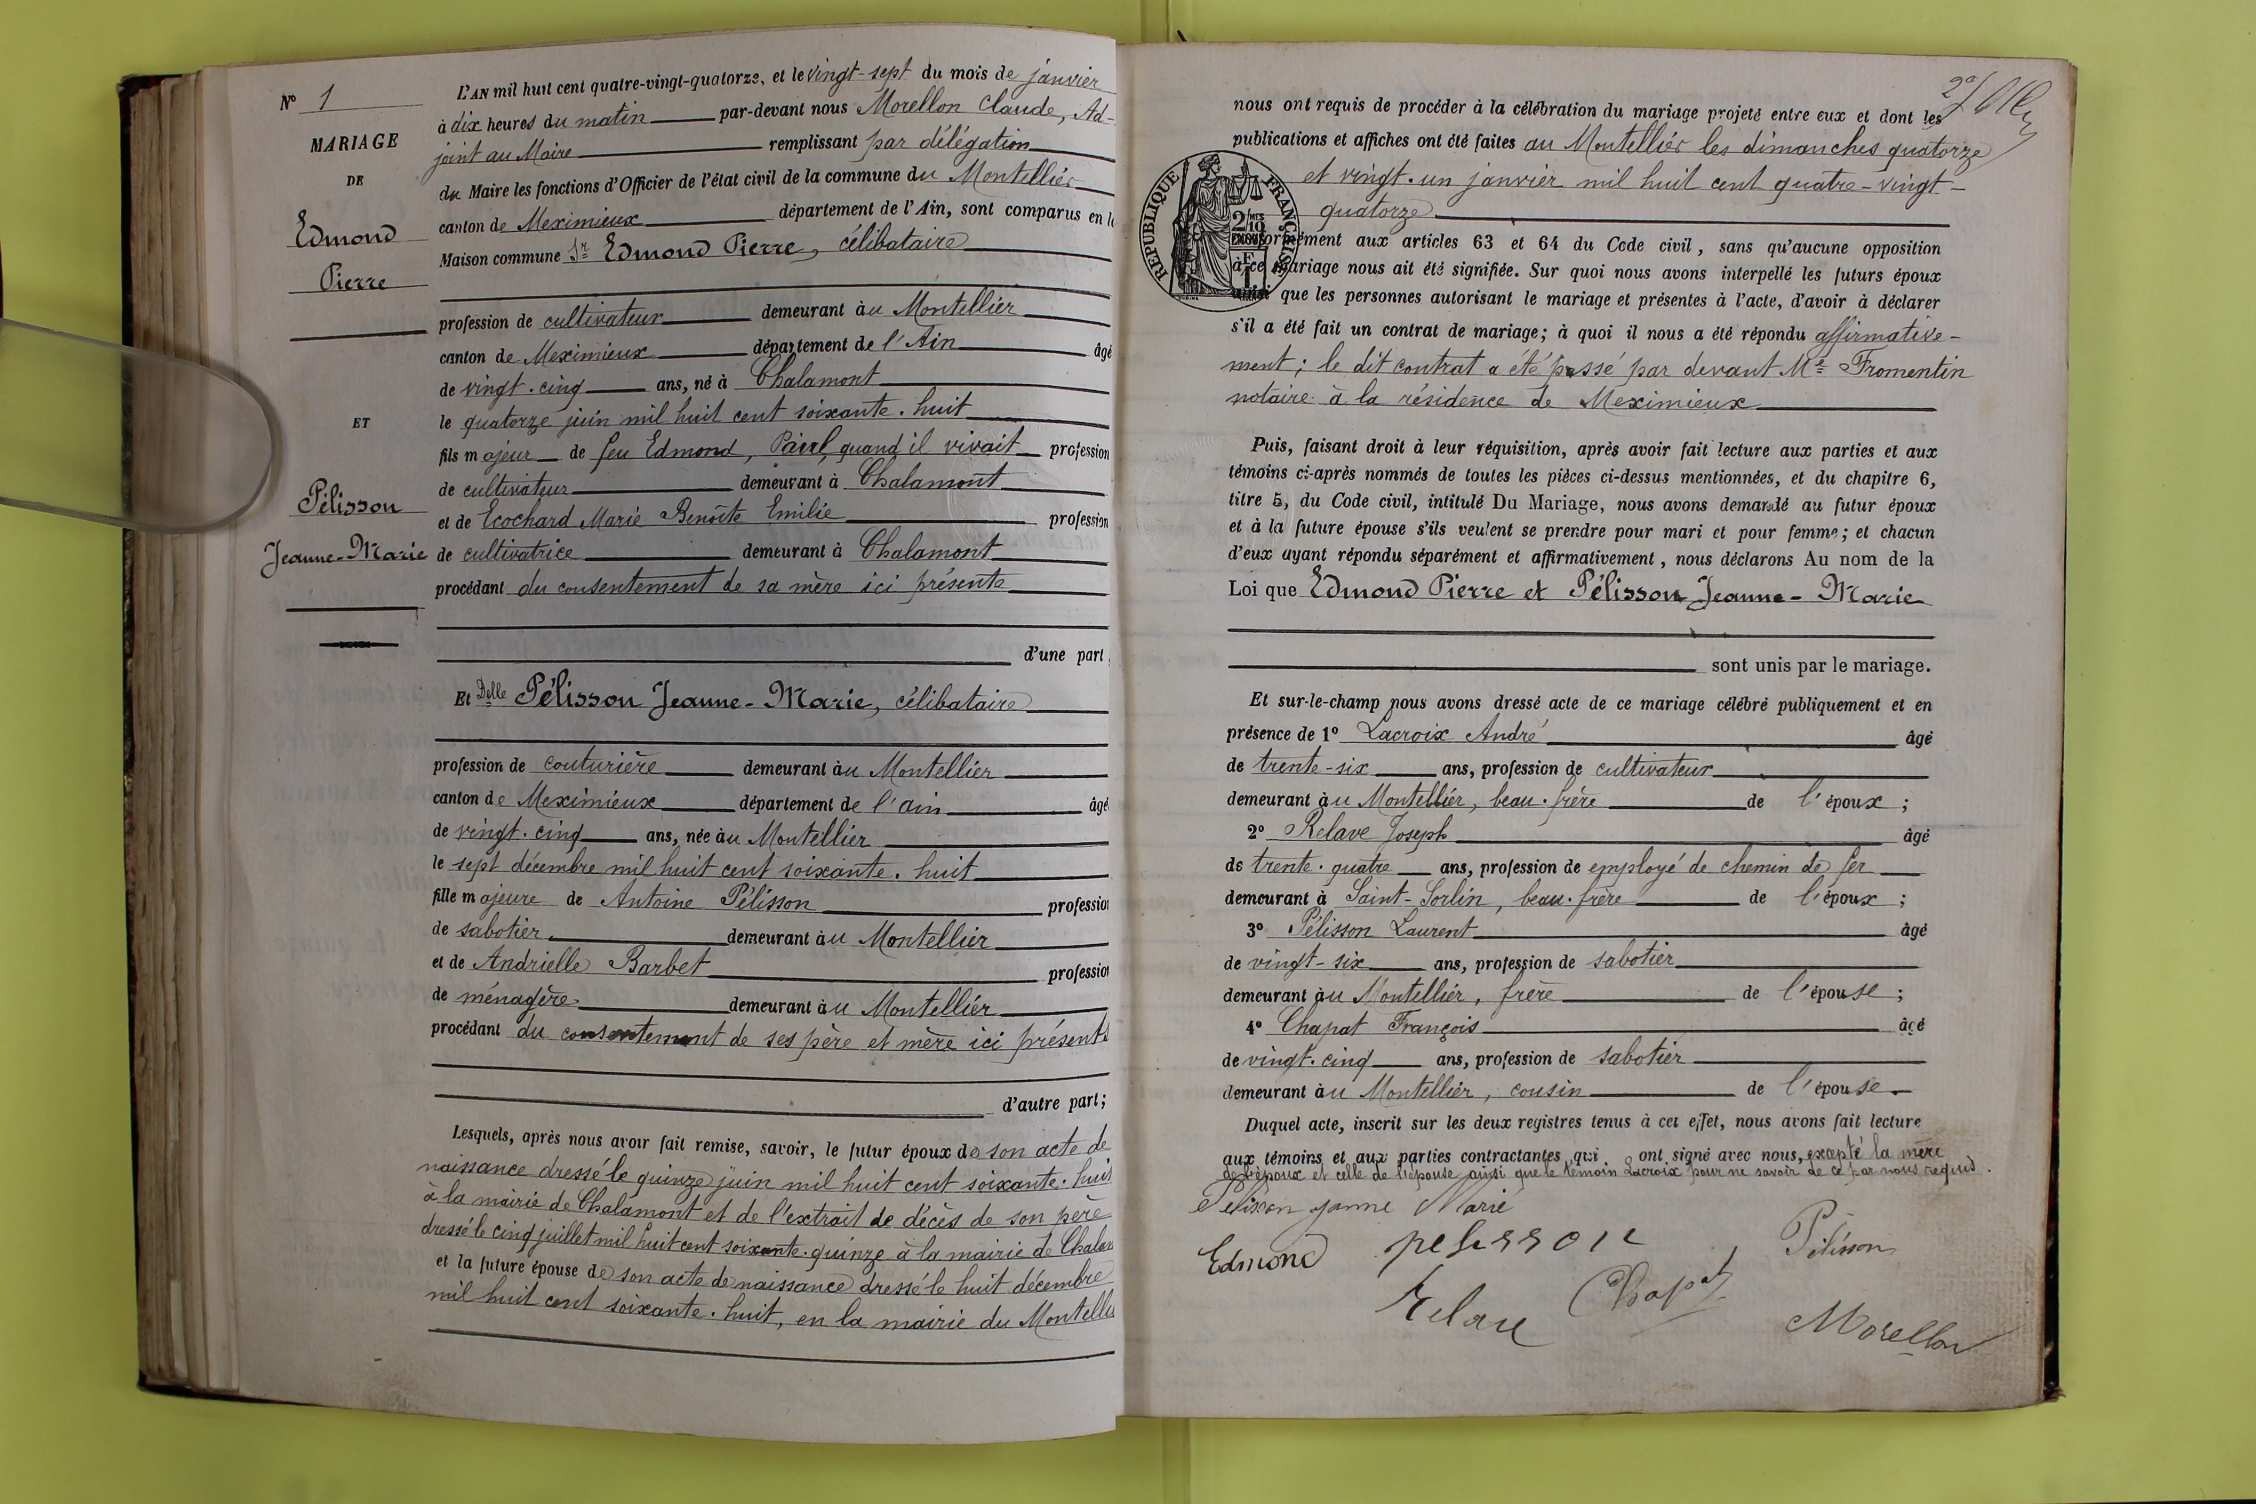 N° 1
MARIAGE
DE
Edmond
Pierre
ET
Pélisson
Jeanne-Marie
L'AN mil huit cent quatre-vingt-quatorze, et le vingt-sept du mois de janvier
à dix heures du matin par-devant nous Morellon Claude, Ad-
joint au Maire remplissant par délégation
du Maire les fonctions d'Officier de l'état civil de la commune du Montellier
canton de Meximieux département de l'Ain, sont comparus en la
Maison commune Sr Edmond Pierre, célibataire
profession de cultivateur demeurant au Montellier
canton de Meximieux département de l'Ain âgé
de vingt-cinq ans, né à Chalamont
le quatorze juin mil huit cent soixante-huit
fils majeur de feu Edmond, quand il vivait profession
de cultivateur demeurant à Chalamont
et de Ecochard Marie Benoîte Emilie profession
de cultivatrice demeurant à Chalamont
procédant du consentement de sa mère ici présente
d'une part,
Et Delle Pélisson Jeanne-Marie, célibataire
profession de couturière demeurant au Montellier
canton de Meximieux département de l'ain âgé
de vingt-cinq ans, née au Montellier
le sept décembre mil huit cent soixante-huit
fille majeure de Antoine Pélisson profession
de sabotier demeurant au Montellier
et de Andrielle Barbet profession
de ménagère demeurant au Montellier
procédant du consentement de ses père et mère ici présents
d'autre part;
Lesquels, après nous avoir fait remise, savoir, le futur époux de son acte de
naissance dressé le quinze juin mil huit cent soixante-huit
à la mairie de Chalamont et de l'extrait de décès de son père
dressé le cinq juillet mil huit cent soixante-quinze à la mairie de Chalam
et la future épouse de son acte de naissance dressé le huit décembre
mil huit cent soixante-huit, en la mairie du Montellie
nous ont requis de procéder à la célébration du mariage projeté entre eux et dont les
publications et affiches ont été faites au Montellier les dimanches quatorze
et vingt-un janvier mil huit cent quatre-vingt-
quatorze
RÉPUBLIQUE FRANÇAISE
2/10 EN SUS
1 F
Conformément aux articles 63 et 64 du Code civil, sans qu'aucune opposition
à ce mariage nous ait été signifiée. Sur quoi nous avons interpellé les futurs époux
ainsi que les personnes autorisant le mariage et présentes à l'acte, d'avoir à déclarer
s'il a été fait un contrat de mariage; à quoi il nous a été répondu affirmative-
ment; le dit contrat a été passé par devant Me Fromentin
notaire à la résidence de Meximieux
Puis, faisant droit à leur réquisition, après avoir fait lecture aux parties et aux
témoins ci-après nommés de toutes les pièces ci-dessus mentionnées, et du chapitre 6,
titre 5, du Code civil, intitulé Du Mariage, nous avons demandé au futur époux
et à la future épouse s'ils veulent se prendre pour mari et pour femme; et chacun
d'eux ayant répondu séparément et affirmativement, nous déclarons Au nom de la
Loi que Edmond Pierre et Pélisson Jeanne-Marie
sont unis par le mariage.
Et sur-le-champ nous avons dressé acte de ce mariage célébré publiquement et en
présence de 1° Lacroix André âgé
de trente-six ans, profession de cultivateur
demeurant au Montellier, beau-frère de l'époux;
2° Relave Joseph âgé
de trente-quatre ans, profession de employé de chemin de fer
demeurant à Saint-Sorlin, beau-frère de l'époux;
3° Pélisson Laurent âgé
de vingt-six ans, profession de sabotier
demeurant au Montellier, frère de l'épouse;
4° Chapat François âgé
de vingt-cinq ans, profession de sabotier
demeurant au Montellier, cousin de l'épouse.
Duquel acte, inscrit sur les deux registres tenus à cet effet, nous avons fait lecture
aux témoins et aux parties contractantes qui ont signé avec nous, excepté la mère
de l'époux et celle de l'épouse ainsi que le témoin Lacroix pour ne savoir de ce par nous requis.
Pelisson janne Marie
Edmond pelisson Pélisson
Relave Chapat Morellon